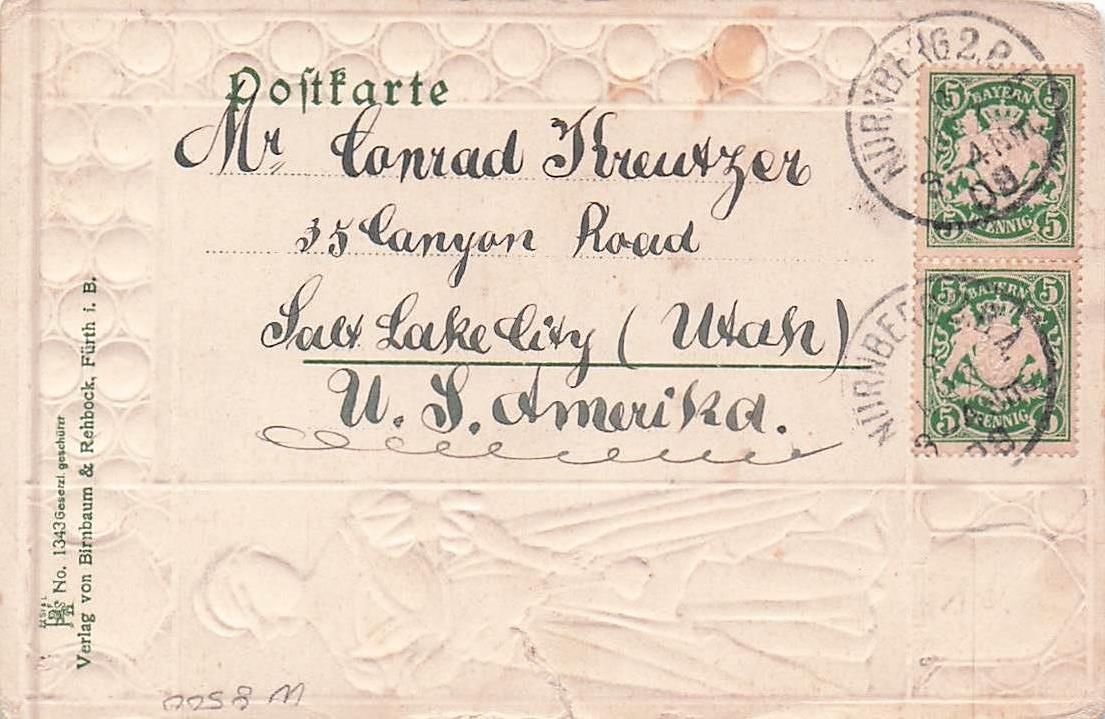 Postkarte
Mr Conrad Kreutzer
35 Canyon Road
Salt Lake City (Utah)
U. S. Amerika.
No. 1343 Gesetzl geschützt
Verlag von Birnbaum & Rehbock, Fürth i. B.
5 BAYERN 5
5 PFENNIG 5
NÜRNBERG 2.
5 BAYERN 5
5 PFENNIG 5
NÜRNBERG